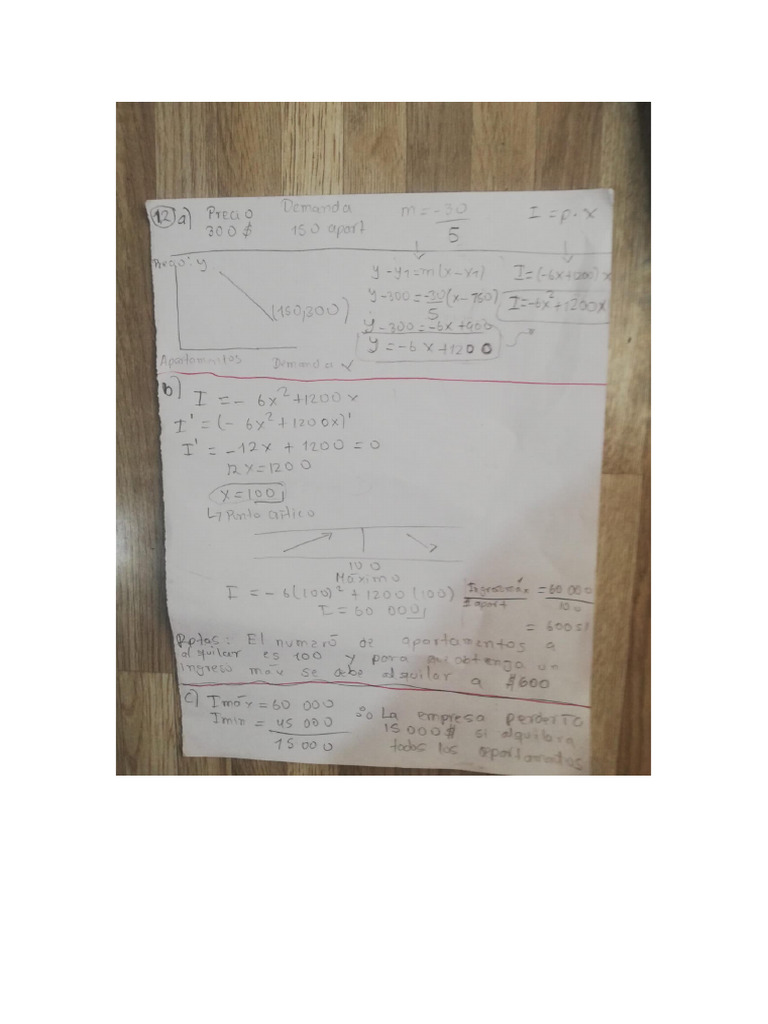 12) a) Precio Demanda m = -30/5 I = p · x
300 $ 150 apart
Precio: y
(150,300)
Apartamentos Demanda x
y - y1 = m(x - x1)
y - 300 = -30/5 (x - 150)
y - 300 = -6x + 900
y = -6x + 1200
I = (-6x + 1200) x
I = -6x² + 1200x
b) I = - 6x² + 1200x
I' = (- 6x² + 1200x)'
I' = -12x + 1200 = 0
12x = 1200
x = 100
↳ Punto crítico
100
Máximo
I = -6(100)² + 1200(100)
I = 60 000
Ingreso máx / 1 apart = 60 000 / 100
= 600 $/
Rptas: El numero de apartamentos a
alquilar es 100 y para que obtenga un
ingreso máx se debe alquilar a $600
c) Imáx = 60 000
Imin = 45 000
15 000
∴ La empresa perdería
15000$ si alquilara
todos los apartamentos